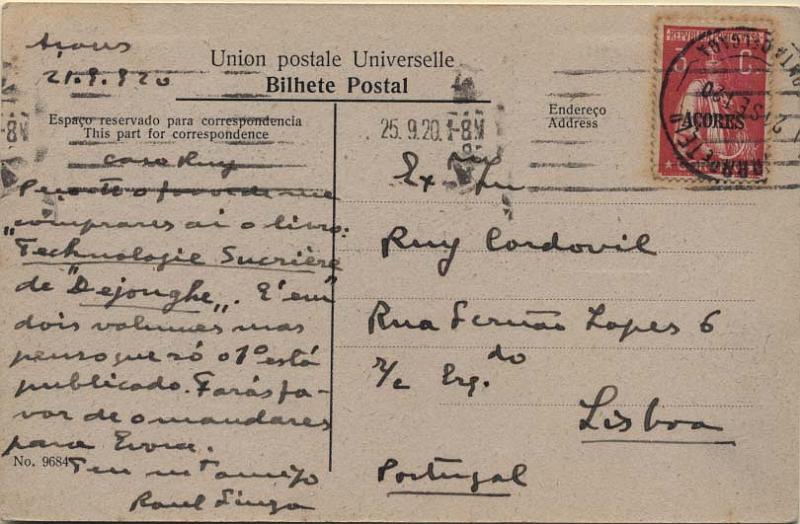 Açores
21.9.920
Union postale Universelle
Bilhete Postal
Espaço reservado para correspondencia
This part for correspondence
Endereço
Address
25.9.20. 1-8M
REPUBLICA
3 C.
AÇORES
21 SET 20
Caro Ruy
Peço-te o favor de me
comprares ai o livro:
"Technologie Sucrière"
de "Dejonghe". É em
dois volumes mas
penso que só o 1º está
publicado. Farás fa-
vor de o mandares
para Evora.
Teu mto amigo
Raul
No. 9684
Exmo Snr
Ruy Cordovil
Rua Fernão Lopes 6
r/c Esq.do
Lisboa
Portugal